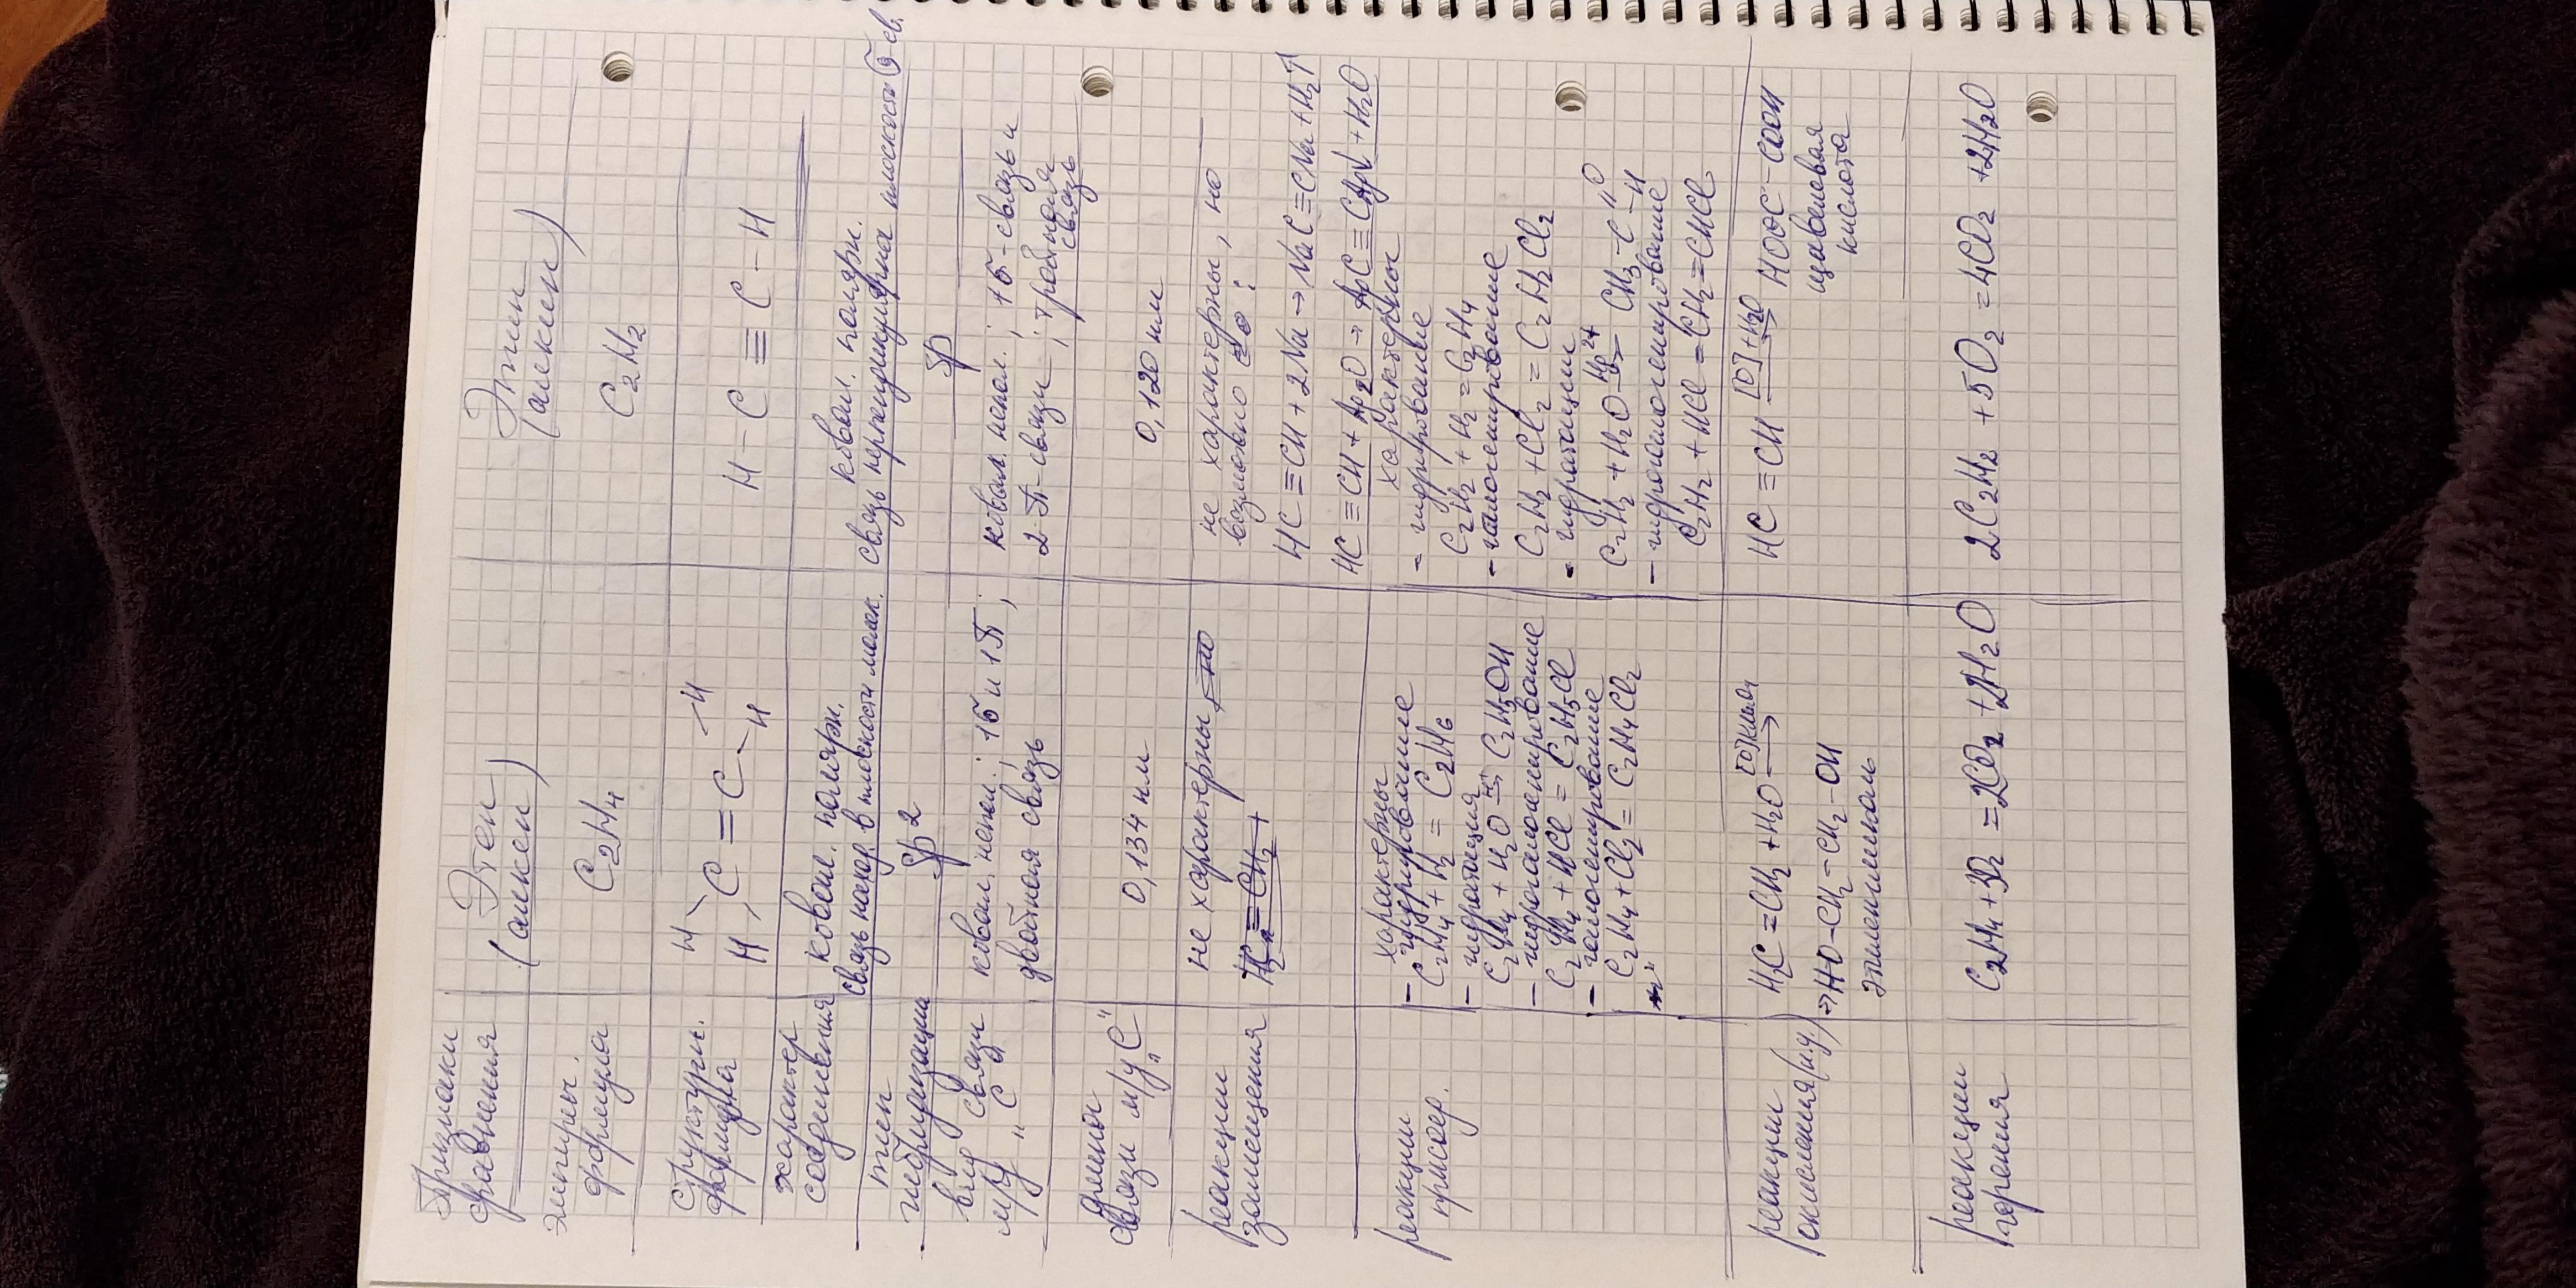 Признаки сравнения
Этен
(алкен)
Этин
(алкин)
эмпирич. формула
C2H4
C2H2
структурн. формула
H H
C = C
H H
H - C ≡ C - H
характер соединения
ковал. полярн.
связь наход. в плоскости молек.
ковал. полярн.
связь перпендикулярна плоскости σ св.
тип гибридизации
Sp2
Sp
вид связи м/у "C"
ковал. непол.; 1σ и 1π;
двойная связь
ковал. непол.; 1σ-связь и
2 π-связи; тройная связь
длина связи м/у "C"
0,134 нм
0,120 нм
реакции замещения
не характерны
не характерны, но
возможно:
HC≡CH + 2Na → NaC≡CNa + H2↑
HC≡CH + Ag2O → AgC≡CAg↓ + H2O
реакции присоед.
характерны
- гидрирование
C2H4 + H2 = C2H6
- гидратация
C2H4 + H2O H+→ C2H5OH
- гидрогалогенирование
C2H4 + HCl = C2H5Cl
- галогенирование
C2H4 + Cl2 = C2H4Cl2
характерны
- гидрирование
C2H2 + H2 = C2H4
- галогенирование
C2H2 + Cl2 = C2H2Cl2
- гидратации
C2H2 + H2O Hg2+→ CH3 - C =O -H
- гидрогалогенирование
C2H2 + HCl = CH2=CHCl
реакции окисления
H2C=CH2 + H2O [O]KMnO4→
→ HO-CH2-CH2-OH
этиленгликоль
HC≡CH [O]+H2O→ HOOC-COOH
щавелевая
кислота
реакции горения
C2H4 + 3O2 = 2CO2 + 2H2O
2C2H2 + 5O2 = 4CO2 + 2H2O